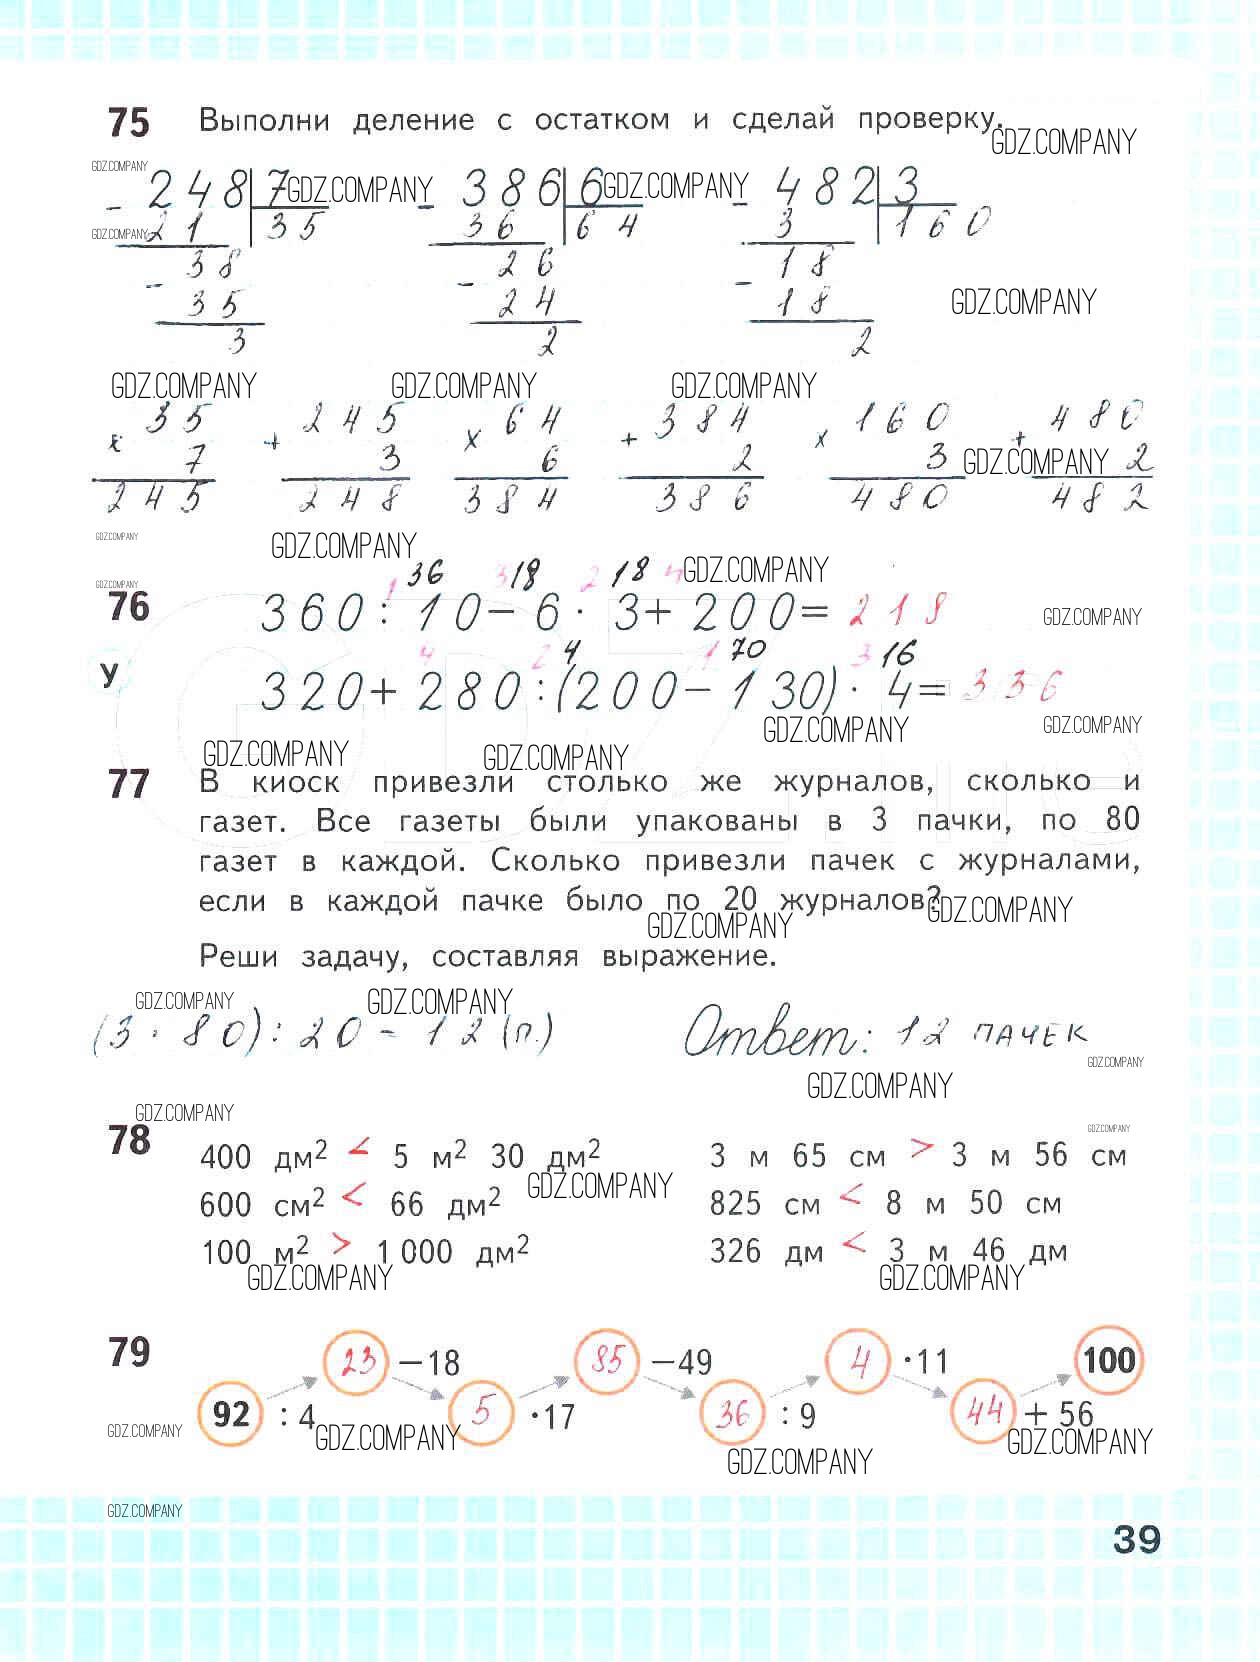 75 Выполни деление с остатком и сделай проверку.
GDZ.COMPANY
GDZ.COMPANY
- 248 | 7 GDZ.COMPANY - 386 | 6 GDZ.COMPANY - 482 | 3
GDZ.COMPANY 21 35 36 64 3 160
38 26 18
- 35 - 24 - 18 GDZ.COMPANY
3 2 2
GDZ.COMPANY GDZ.COMPANY GDZ.COMPANY
35 245 64 384 160 480
x 7 + 3 x 6 + 2 x 3 + GDZ.COMPANY 2
245 248 384 386 480 482
GDZ.COMPANY GDZ.COMPANY
GDZ.COMPANY 1 36 3 18 2 18 4 GDZ.COMPANY
76 360 : 10 - 6 · 3 + 200 = 218 GDZ.COMPANY
4 2 4 1 70 3 16
У 320 + 280 : (200 - 130) · 4 = 336
GDZ.COMPANY GDZ.COMPANY
GDZ.COMPANY GDZ.COMPANY
77 В киоск привезли столько же журналов, сколько и
газет. Все газеты были упакованы в 3 пачки, по 80
газет в каждой. Сколько привезли пачек с журналами,
если в каждой пачке было по 20 журналов?
GDZ.COMPANY GDZ.COMPANY
Реши задачу, составляя выражение.
GDZ.COMPANY GDZ.COMPANY
(3 · 80) : 20 = 12 (п.) Ответ: 12 пачек
GDZ.COMPANY
GDZ.COMPANY
GDZ.COMPANY GDZ.COMPANY
78 400 дм² < 5 м² 30 дм² 3 м 65 см > 3 м 56 см
GDZ.COMPANY
600 см² < 66 дм² 825 см < 8 м 50 см
100 м² > 1 000 дм² 326 дм < 3 м 46 дм
GDZ.COMPANY GDZ.COMPANY
79 23 -18 85 -49 4 ·11 100
92 : 4 5 ·17 36 : 9 44 + 56
GDZ.COMPANY GDZ.COMPANY GDZ.COMPANY GDZ.COMPANY
GDZ.COMPANY
39